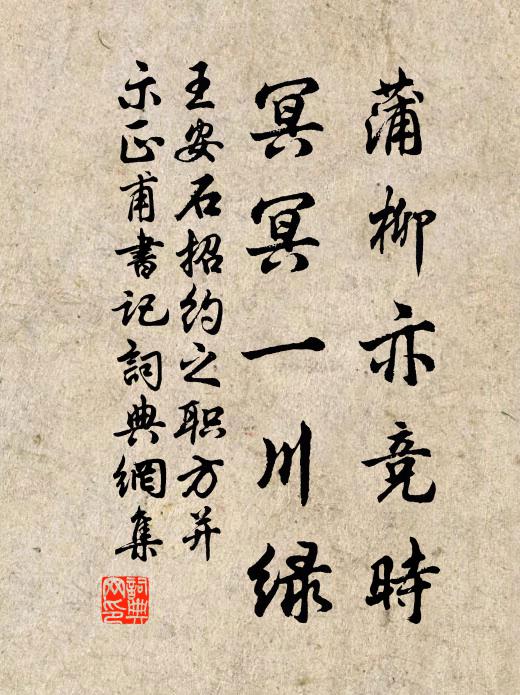 蒲柳亦竞時
冥冥一川绿
王安石招约之职方并
示正甫書记詞典網集
詞典网印